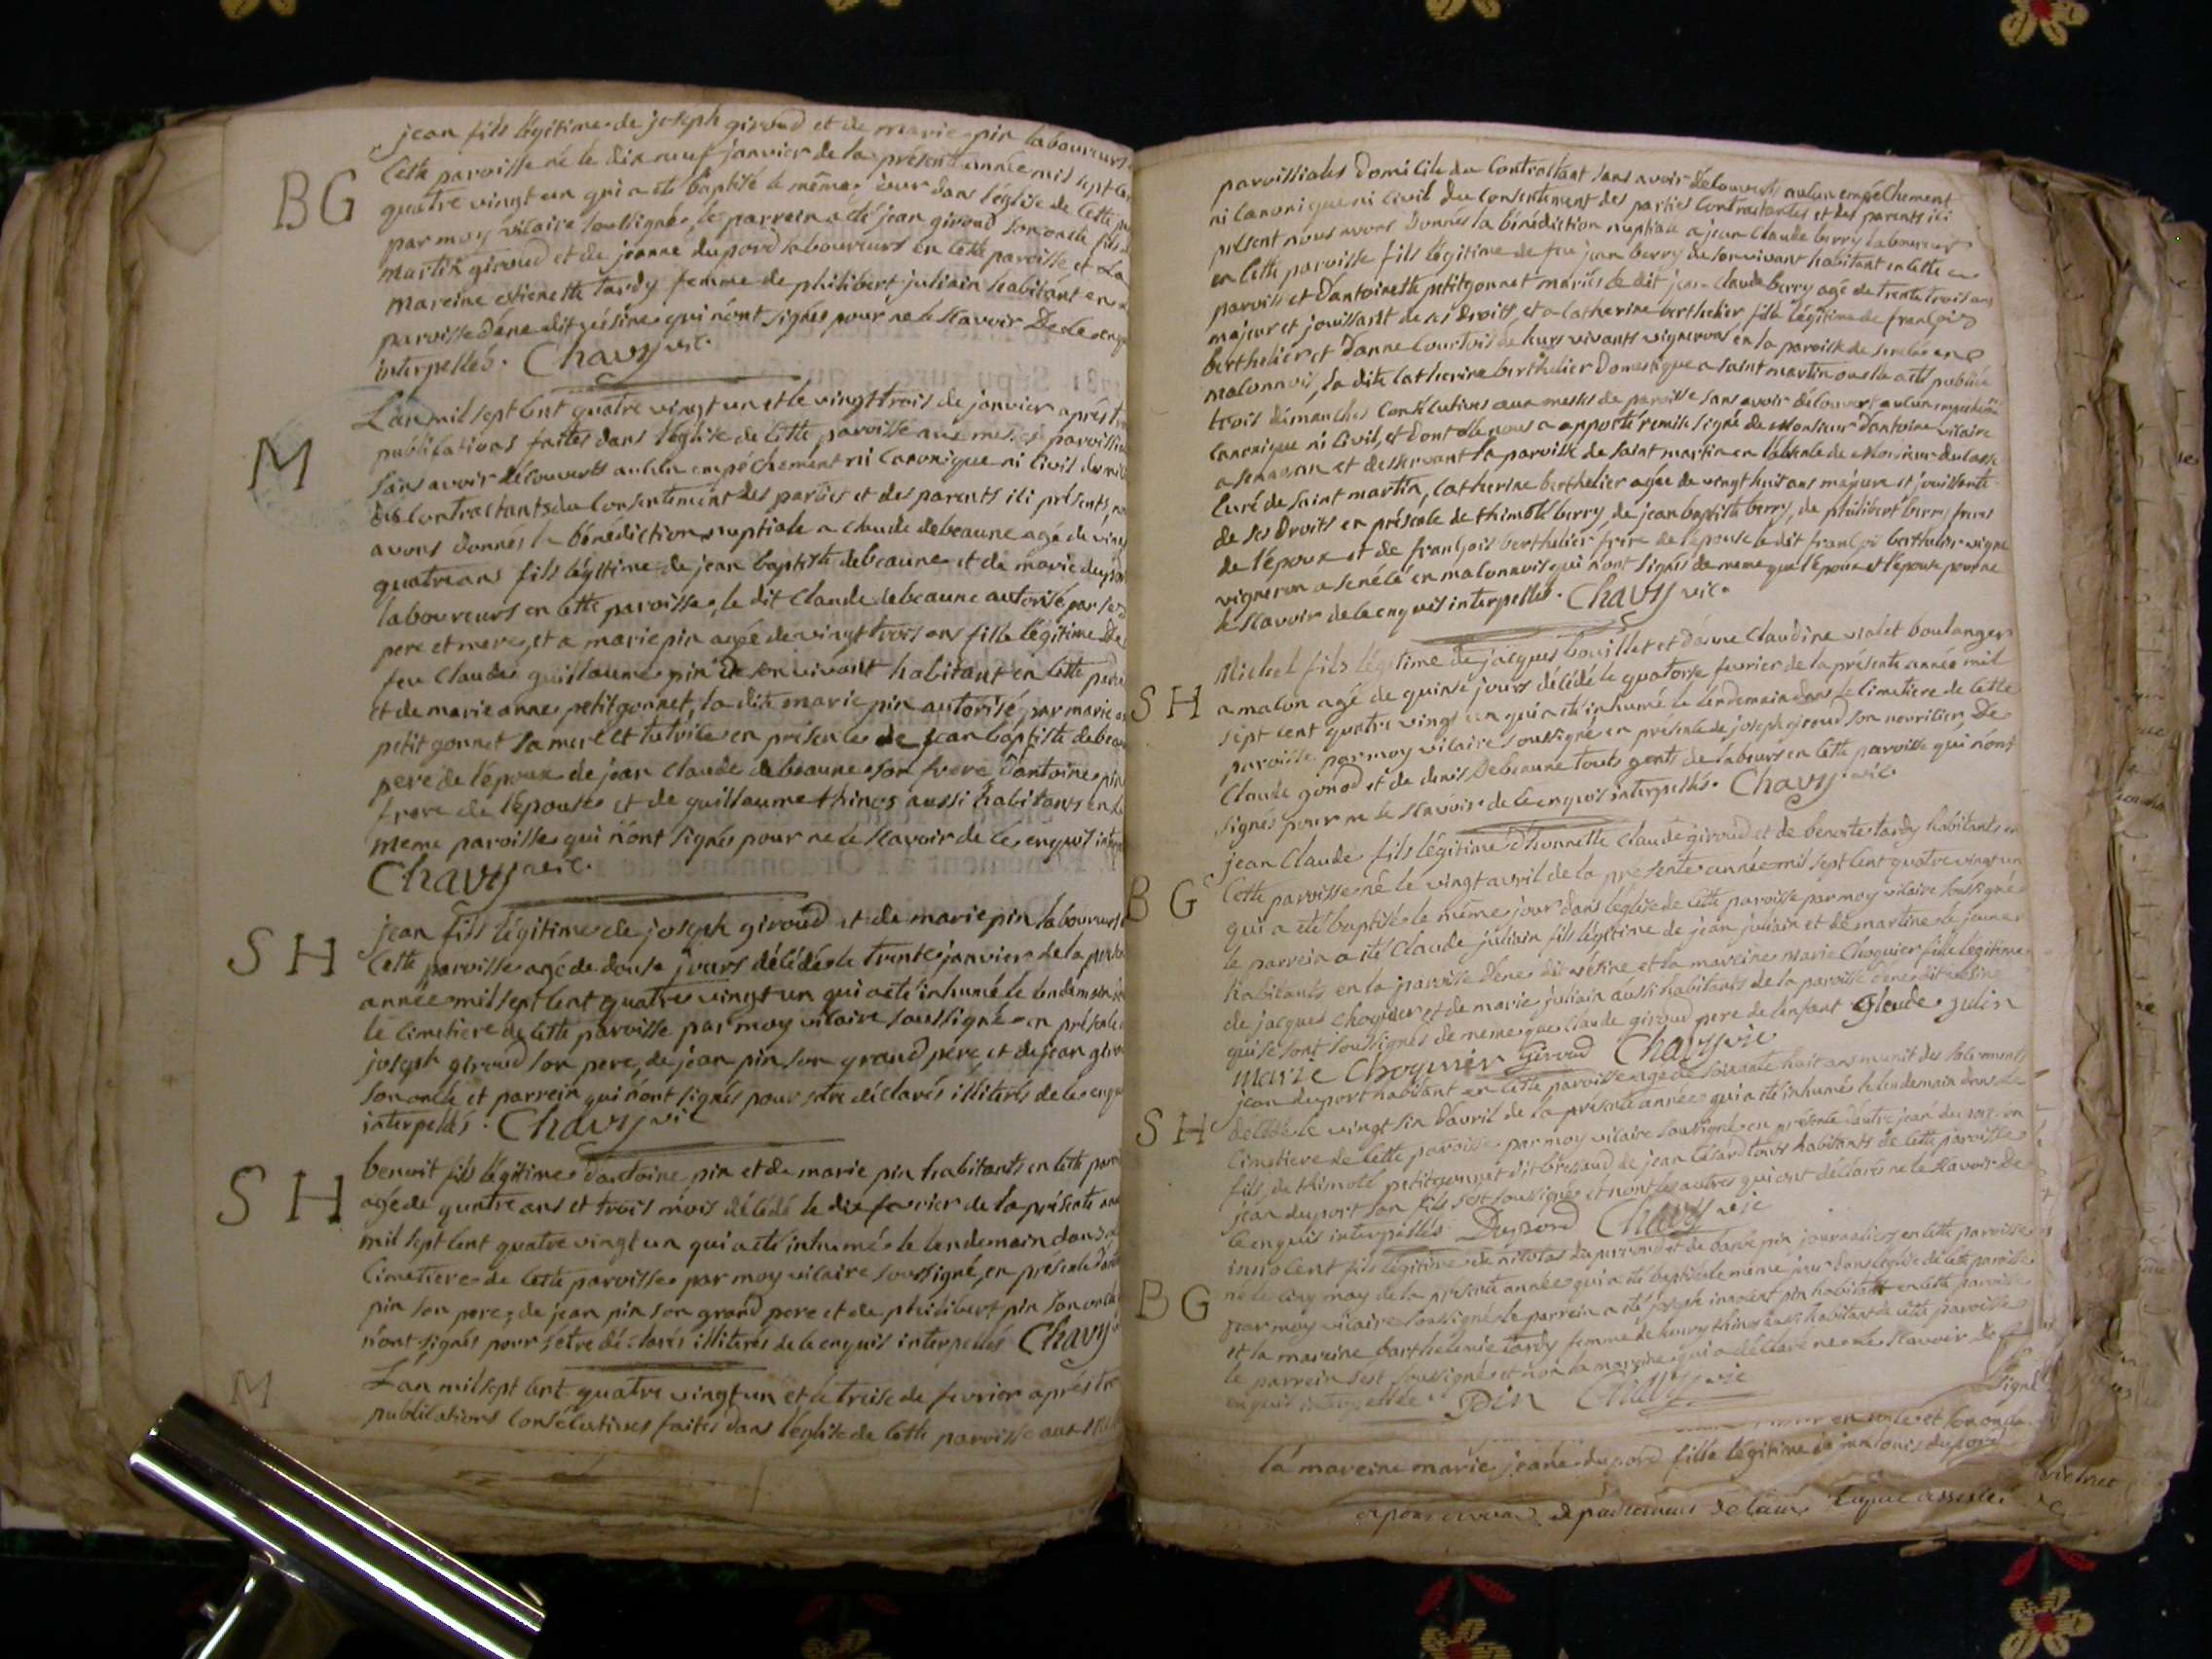 jean fils légitime de joseph giroud et de marie pin laboureurs
BG
Cette paroisse né le dix neuf janvier de la présente année mil sept cen
quatre vingt un qui a eté baptisé le même jour dans l'église de cette
par moy vicaire soussigné, le parrein a eté jean giroud son oncle fils
martin giroud et de jeanne dupord laboureurs en cette paroisse et la
mareine etienette tardy femme de philibert juliain habitant en
paroisse d'ene dit qui n'ont signés pour ne le scavoir De ce enq
interpellés. Chavy vic.
M
L'an mil sept cent quatre vingt un et le vingt trois de janvier après tr
publications faites dans l'église de cette paroisse aux messes paroissia
sans avoir découverts aucun empêchement ni canonique ni civil du
des contractants du consentement des parties et des parents ici présents, no
avons donnés la bénédiction nuptiale a claude debeaune agé de vin
quatre ans fils légitime de jean baptiste debeaune et de marie dupo
laboureurs en cette paroisse, le dit claude debeaune autorisé par
pere et mere, et a marie pin agée de vingt trois ans fille légitime De
feu claude guillaume pin de son vivant habitant en cette paro
et de marie anne petitgonnet, la dite marie pin autorisé par marie
petit gonnet sa mere et tutrice en présence de jean baptiste debea
pere de l'époux de jean claude debeaune son frere, d'antoine pin
frere de l'épouse et de guillaume thinos aussi habitants en
meme paroisse qui n'ont signés pour ne le scavoir de ce enquis int
Chavy vic.
SH
jean fils légitime de joseph giroud et de marie pin laboureurs
Cette paroisse agé de douse jours décédé le trente janvier de la prese
année mil sept cent quatre vingt un qui a eté inhumé le lendemain
le cimetiere de cette paroisse par moy vicaire soussigné en présence
joseph giroud son pere, de jean pin son grand pere, et de jean giro
son oncle et parrein qui n'ont signés pour s'etre déclarés illiterés de ce enqu
interpellés. Chavy vic
SH
benoit fils légitime d'antoine pin et de marie pin habitants en cette paroi
agé de quatre ans et trois mois décédé le dix fevrier de la présente ann
mil sept cent quatre vingt un qui a eté inhumé le lendemain dans
cimetiere de cette paroisse par moy vicaire soussigné, en présence d'ant
pin son pere, de jean pin son grand pere et de philibert pin son oncle
n'ont signés pour s'etre déclarés illiterés de ce enquis interpellés Chavy
M
L'an mil sept cent quatre vingt un et le treise de fevrier après tr
publications consécutives faites dans l'église de cette paroisse aux
paroissiales domicile du contractant sans avoir découvert aucun empêchement
ni canonique ni civil du consentement des parties contractantes et des parents ici
présent nous avons donnés la bénédiction nuptiale a jean claude berry laboureur
en cette paroisse fils légitime de feu jean berry de son vivant habitant en cette
paroisse et d'antoinette petitgonnet mariés le dit jean claude berry agé de trente trois ans
majeur et jouissant de ses droits, et a catherine berthelier fille légitime de françois
berthelier et d'anne courtois de leurs vivants vignerons en la paroisse de en
malonnois, la dite catherine berthelier domestique a saint martin ou elle a eté publiée
trois dimanches consécutives aux messes de paroisse sans avoir découvert aucun
canonique ni civil, et dont elle nous a apporté remise signé de Monsieur vicaire
a et desservant la paroisse de saint martin en l'absence de Monsieur
curé de saint martin, catherine berthelier agée de vingt huit ans majeure et jouissante
de ses droits en présence de thimoté berry, de jean baptiste berry, de philibert berry freres
de l'époux et de françois berthelier frere de l'épouse le dit françois berthelier vigne
vigneron a en malonnois qui n'ont signés de meme que l'époux et l'épouse pour ne
le scavoir de ce enquis interpellés. Chavy vic.
SH
Michel fils légitime de jacques bouillet et d'anne claudine violet boulanger
a macon agé de quinse jours décédé le quatorse fevrier de la présente année mil
sept cent quatre vingt un qui a eté inhumé le lendemain dans le cimetiere de cette
paroisse par moy vicaire soussigné en présence de joseph giroud son nourricier, De
Claude gonod et de denis debeaune touts gents de labeurs en cette paroisse qui n'ont
signés pour ne le scavoir de ce enquis interpellés. Chavy vic.
BG
jean claude fils légitime d'honnette claude giroud et de benoite tardy habitants en
Cette paroisse né le vingt avril de la présente année mil sept cent quatre vingt un
qui a eté baptisé le même jour dans l'église de cette paroisse par moy vicaire soussigné
le parrein a eté claude juliain fils légitime de jean juliain et de martine le jeune
habitants en la paroisse d'ene dit et la mareine marie Choquier fille légitime
de jacques choquier et de marie juliain aussi habitants de la paroisse d'ene dit
qui se sont soussignés de meme que claude giroud pere de l'enfant Glaude julin
marie Choquier Giroud Chavy vic
SH
jean duport habitant en cette paroisse agé de soixante huit ans munit des sacrements
décédé le vingt six d'avril de la présente année qui a eté inhumé le lendemain dans le
cimetiere de cette paroisse par moy vicaire soussigné en présence d'autre jean duport son
fils, de thimoté petitgonnet dit bressaud de jean tous habitants de cette paroisse
jean duport son fils s'est soussigné et non les autres qui ont déclarés ne le scavoir De
ce enquis interpellés Dupord Chavy vic
BG
innocent fils légitime de nicolas et de pin journaliers en cette paroisse
né le cinq may de la présente année qui a eté baptisé le même jour dans l'église de cette paroisse
par moy vicaire soussigné le parrein a eté joseph innocent pin habitant en cette paroisse
et la mareine barthelemie tardy femme de thinos aussi habitant de cette paroisse
le parrein s'est soussigné et non la mareine qui a déclaré ne le scavoir de ce
enquis interpellée. Pin Chavy vic
signé
et son oncle
la mareine marie jeane dupord fille légitime de jean louis dupord